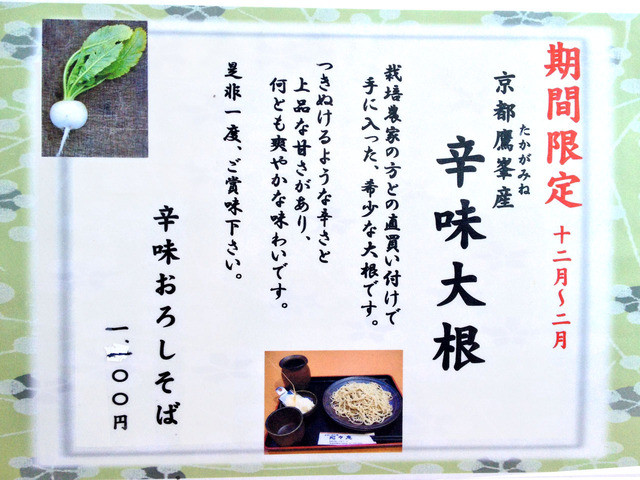 期間限定 十二月～二月
京都鷹峯産
たかがみね
辛味大根
栽培農家の方との直買い付けで
手に入った、希少な大根です。
つきぬけるような辛さと
上品な甘さがあり、
何とも爽やかな味わいです。
是非一度、ご賞味下さい。
辛味おろしそば
一、一〇〇円